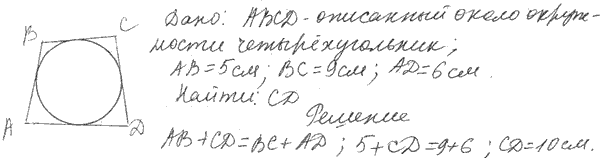 Дано: ABCD-описанный около окруж-
ности четырёхугольник;
AB=5см; BC=9см; AD=6см.
Найти: CD
Решение
AB+CD=BC+AD; 5+CD=9+6; CD=10см.
B
C
A
D